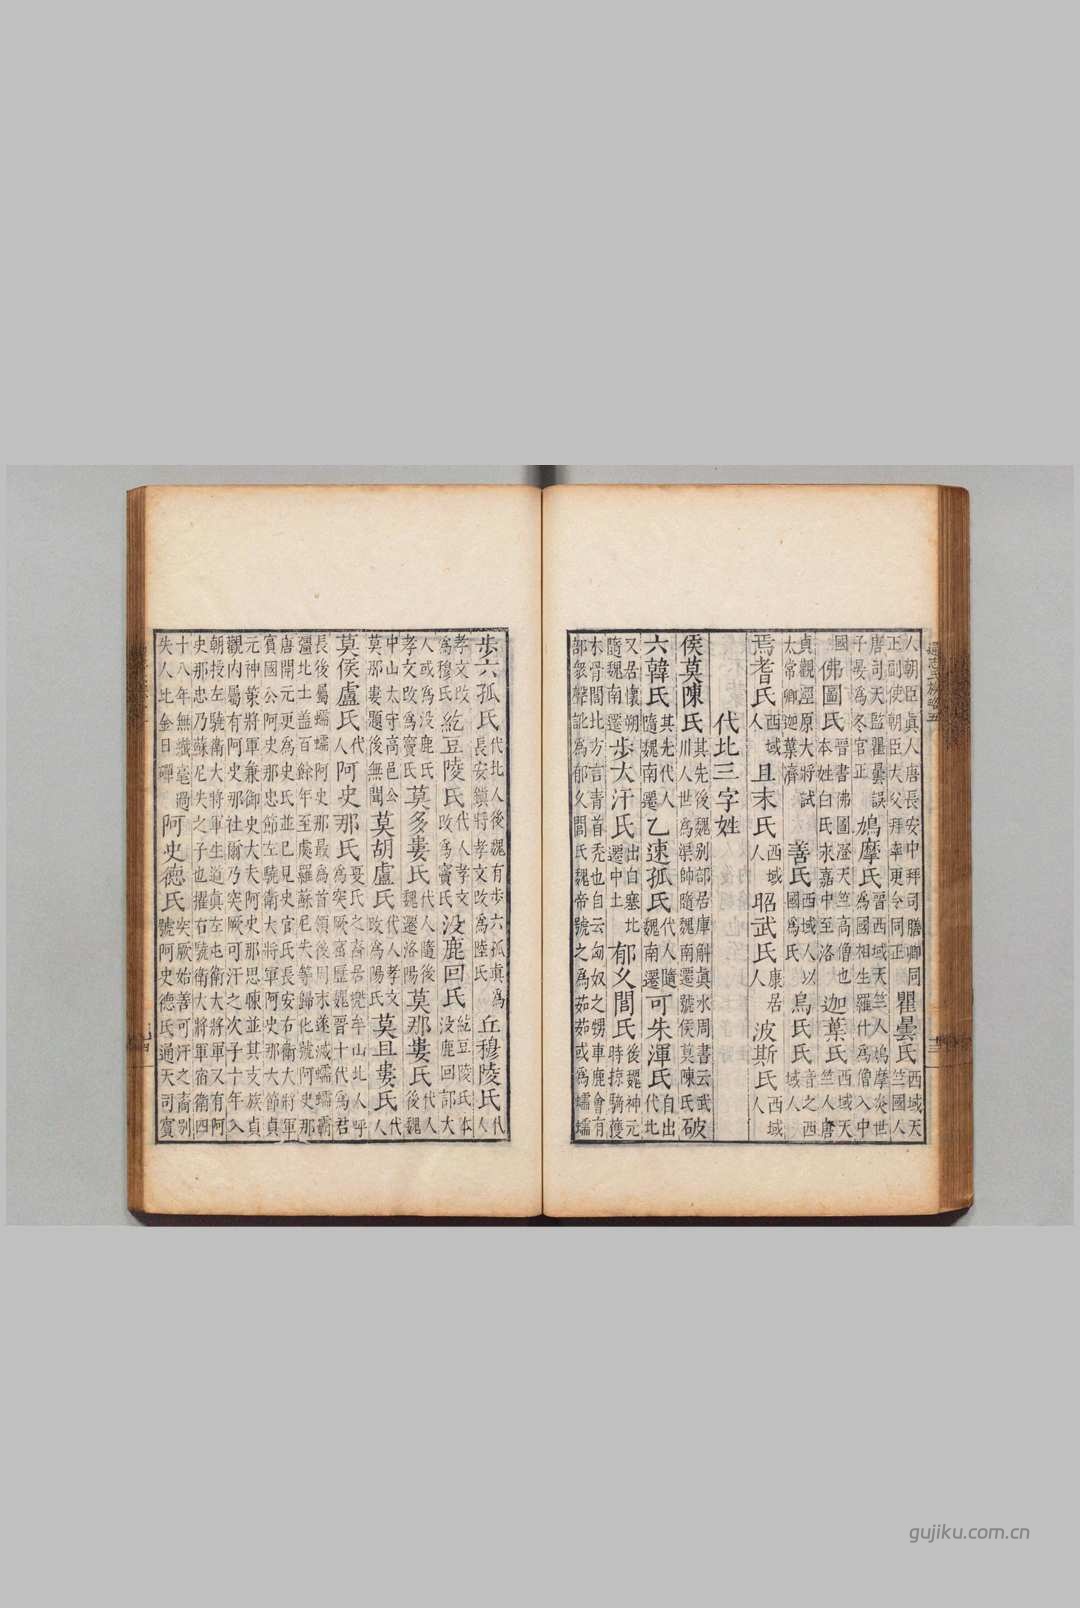 人朝臣真人唐長安中拜司膳卿同
正副使朝臣大父拜率更令同正
瞿曇氏
西域天
竺國人
唐司天監瞿曇譔
子晏爲冬官正
鳩摩氏
晉西域天竺人鳩摩炎世
爲國相生羅什爲僧入中
國
佛圖氏
晉書佛圖澄天竺高僧也
本姓白氏永嘉中至洛
迦葉氏
西域天
竺人唐
貞觀涇原大將試
太常卿迦葉濟
善氏
西域人以
國爲氏
烏氏氏
音之西
域人
焉耆氏
西域
人
且末氏
西域
人
昭武氏
康居
人
波斯氏
西域
人
代北三字姓
侯莫陳氏
其先後魏别部居庫斛真水周書云武
川人世爲渠帥隨魏南遷號侯莫陳氏
破六韓氏
其先代人
隨魏南遷
乙速孤氏
代人隨
魏南遷
可朱渾氏
出自
代北
又居懷朔
隨魏南遷
步大汗氏
出自塞北
遷中土
郁久閭氏
後魏神元
時掠騎獲
木骨閭北方言青首禿也自云匈奴之甥車鹿會有
部衆聲訛爲郁久閭氏魏帝號之爲茹茹或爲蠕蠕
步六孤氏
代北人後魏有步六孤真爲
長安鎮將孝文改爲陸氏
丘穆陵氏
代
人
孝文改
爲穆氏
紇豆陵氏
代人孝文
改爲竇氏
没鹿回氏
紇豆陵氏本
没鹿回部大
人或爲没鹿氏
孝文改爲竇氏
莫多婁氏
代人隨後
魏遷洛陽
莫那婁氏
代人
後魏
中山太守高邑公
莫那婁題後無聞
莫胡盧氏
代人孝文
改爲陽氏
莫且婁氏
代
人
莫侯盧氏
代
人
阿史那氏
夏氏之裔居牟山北人呼
爲突厥窟歷魏晉十代爲君
長後屬蠕蠕阿史那最爲首領後周末遂滅蠕蠕霸
彊北土蓋百餘年至處羅蘇尼失等歸化號阿史那
唐開元更爲史氏並已見史官氏長安右衛大將軍
賓國公阿史那忠節左驍衛大將軍阿史那大節貞
元神策將軍兼御史大夫阿史那思暕並其支族貞
觀内屬有阿史那社爾乃突厥可汗之次子十年入
朝授左驍衛大將軍生道真左屯衛大將軍又有阿
史那忠乃蘇尼失之子也擢右驍衛大將軍宿衛四
十八年無纖毫過
失人比金日磾
阿史德氏
突厥始善可汗之裔别
號阿史德氏通天司賓
gujiku.com.cn